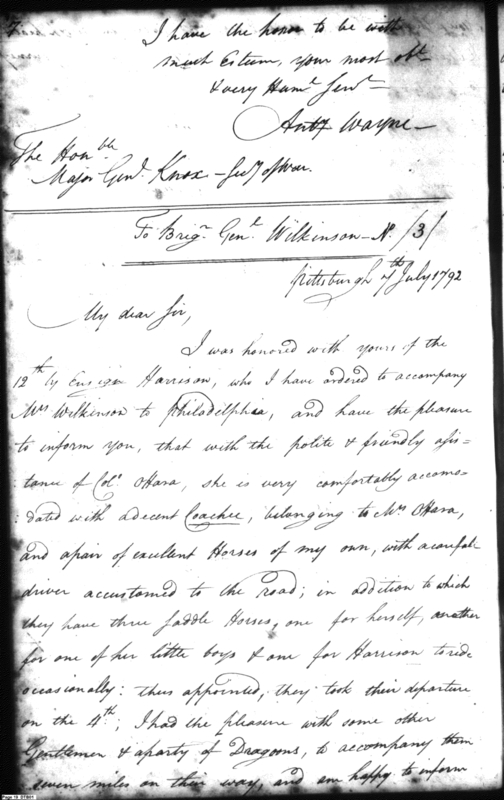 I have the honor to be with
much Esteem, your most obt.
& very Huml. Servt.
Anty. Wayne
The Honble.
Major Genl. Knox - Secy of War.
To Brigr. Genl. Wilkinson - No. /3/
Pittsburgh 7th July 1792
My dear Sir,
I was honored with yours of the
12th by Ensign Harrison, who I have ordered to accompany
Mrs Wilkinson to Philadelphia, and have the pleasure
to inform you, that with the polite & friendly assis=
tance of Colo. OHara, she is very comfortably accomo=
:dated with a decent Coachee, belonging to Mrs OHara,
and a pair of excellent Horses of my own, with a careful
driver accustomed to the road; in addition to which
they have three saddle Horses, one for herself, another
for one of her little boys & one for Harrison to ride
occasionally: thus appointed, they took their departure
on the 4th; I had the pleasure with some other
Gentlemen & a party of Dragoons, to accompany them
seven miles on their way, and am happy to inform